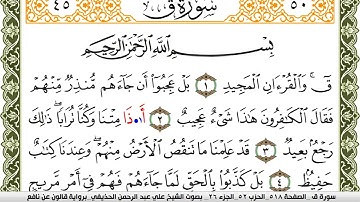 ٤٥ سُورَةُ قٓ ٥٠
بِسْمِ اللَّهِ الرَّحْمَٰنِ الرَّحِيمِ
قٓ وَالْقُرْءَانِ الْمَجِيدِ ١ بَلْ عَجِبُوٓا۟ أَن جَآءَهُم مُّنذِرٌ مِّنْهُمْ
فَقَالَ الْكَٰفِرُونَ هَٰذَا شَىْءٌ عَجِيبٌ ٢ أَ.ذَا مِتْنَا وَكُنَّا تُرَاباً ذَٰلِكَ
رَجْعٌ بَعِيدٌ ٣ قَدْ عَلِمْنَا مَا تَنقُصُ الْأَرْضُ مِنْهُمْ وَعِندَنَا كِتَٰبٌ
حَفِيظٌ ٤ بَلْ كَذَّبُوا۟ بِالْحَقِّ لَمَّا جَآءَهُمْ فَهُمْ فِىٓ أَمْرٍ مَّرِيجٍ
سورة ق - الصفحة ٥١٨ - الحزب ٥٢ - الجزء ٢٦ - بصوت الشيخ علي عبد الرحمن الحذيفي - برواية قالون عن نافع